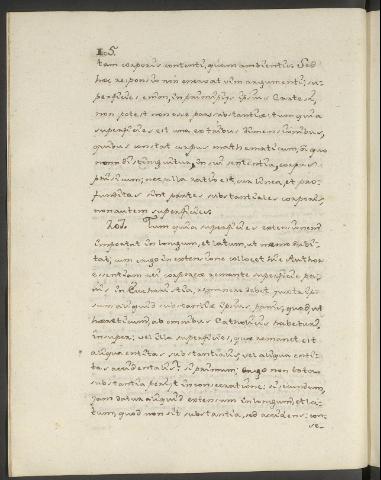 105.
tam corporis contenti, quam ambientis. Sed
hec responsio non enervat vim argumenti; su-
perficies enim, in principijs ipsius Cartesii,
non potest non esse pars substantiæ: tum quia
superficies est una ex tribus dimensionibus,
quibus constat corpus mathematicum, à quo
non distinguitur, in sui sententia, corpus
phisicum; nec ulla ratio est, cur linea, et pro-
funditas sint partes substantiales corporis
non autem superficies.
Tum quia superficies extensionem
importat in longum, et latum, ut nemo dubi-
tat; cum ergo in extensione collocet hic Author
essentiam rei corporeæ remante superficie pa-
nis in Eucharistia, remanere debet juxta ip-
sum aliquid substantiæ ipsius panis; quod ut
hæreticum, ab omnibus Catholicis habetur,
insuper; vel illa superficies, quæ remanet est
aliqua entitas substantialis vel aliqua enti-
tas accidentalis: si primum; ergo non tota
substantia perijt in consecratione; si secundum,
jam datur aliquid extensum in longum, et la-
tum, quod non sit substantia, sed accidens: con-
se-